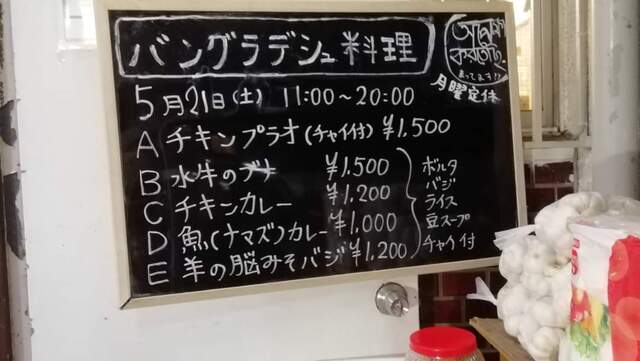 バングラデシュ料理
5月21日(土) 11:00~20:00
A チキンプラオ(チャイ付) ¥1.500
B 水牛の ¥1.500
C チキンカレー ¥1.200
D 魚(ナマズ)カレー ¥1,000
E 羊の脳みそバジ ¥1.200
ボルタ
バジ
ライス
豆スープ
チャイ付
まってます!!
月曜定休